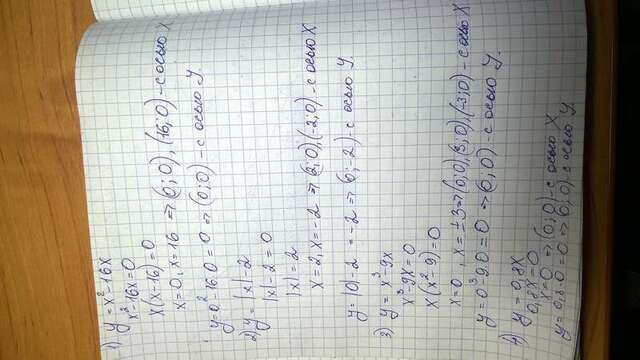 1) y = x² - 16x
x² - 16x = 0
x(x - 16) = 0
x = 0, x = 16 => (0; 0), (16; 0) - с осью X
y = 0² - 16·0 = 0 => (0; 0) - с осью Y.
2) y = |x| - 2
|x| - 2 = 0
|x| = 2
x = 2, x = -2 => (2; 0), (-2; 0) - с осью X
y = |0| - 2 = -2 => (0; -2) - с осью Y.
3) y = x³ - 9x
x³ - 9x = 0
x(x² - 9) = 0
x = 0, x = ±3 => (0; 0), (3; 0), (-3; 0) - с осью X
y = 0³ - 9·0 = 0 => (0; 0) - с осью Y.
4) y = 0,8x
0,8x = 0
x = 0 => (0; 0) - с осью X
y = 0,8·0 = 0 => (0; 0) - с осью Y.